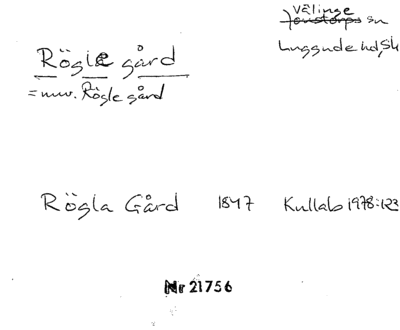 Välinge
Jonstorps sn
Rögle gård
Luggude hd, Sk
= nuv. Rögle gård
Rögla Gård 1847 Kullab 1978:123
Nr 21756